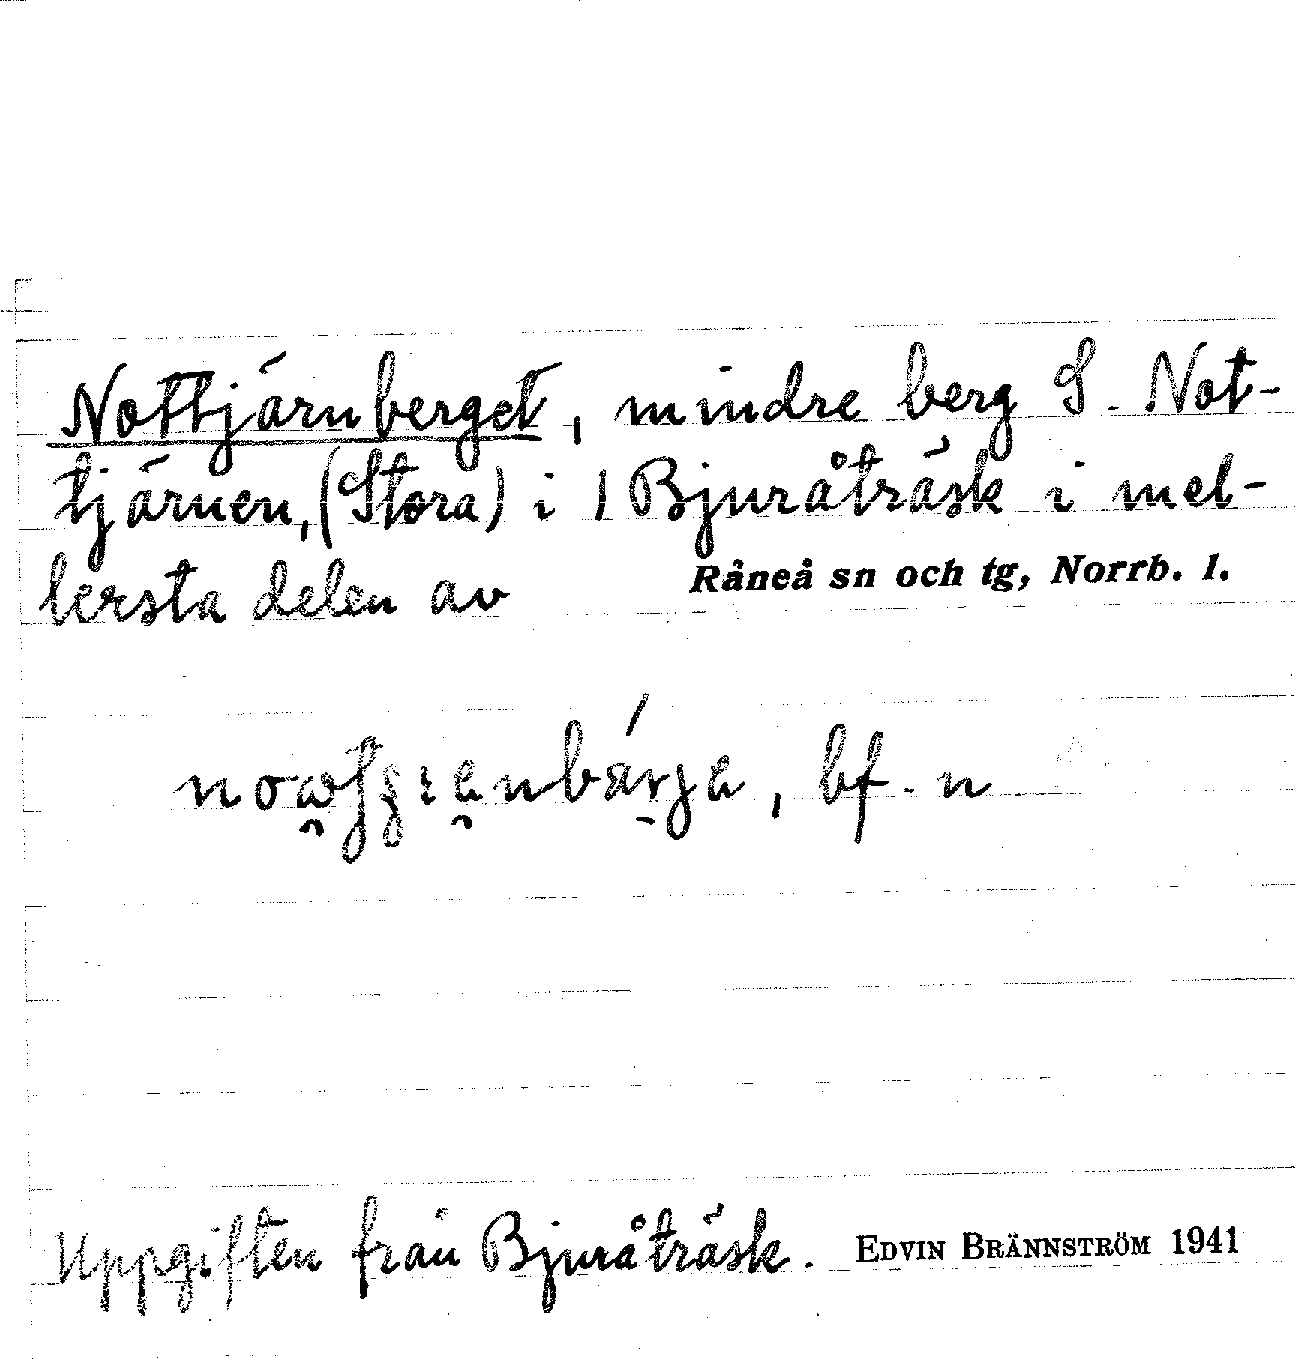 Nottjärnberget, mindre berg S. Not-
tjärnen, (Stora) i | Bjuråträsk i mel-
lersta delen av Råneå sn och tg, Norrb. l.
bf. n
Uppgiften från Bjuråträsk. EDVIN BRÄNNSTRÖM 1941